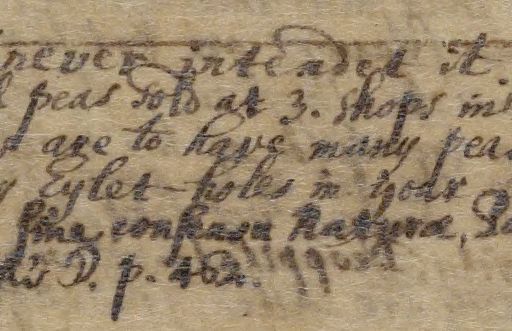 never intended it.
peas sold at 3. shops in
age to have many pea
Eylet-holes in your
sine confusa Natura,
D. p. 462.